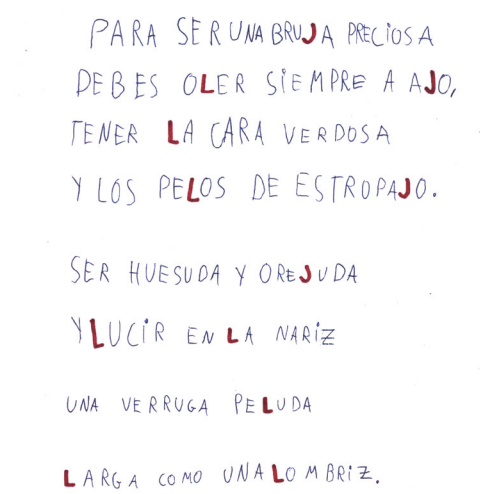 PARA SER UNA BRUJA PRECIOSA
DEBES OLER SIEMPRE A AJO,
TENER LA CARA VERDOSA
Y LOS PELOS DE ESTROPAJO.
SER HUESUDA Y OREJUDA
Y LUCIR EN LA NARIZ
UNA VERRUGA PELUDA
LARGA COMO UNA LOMBRIZ.